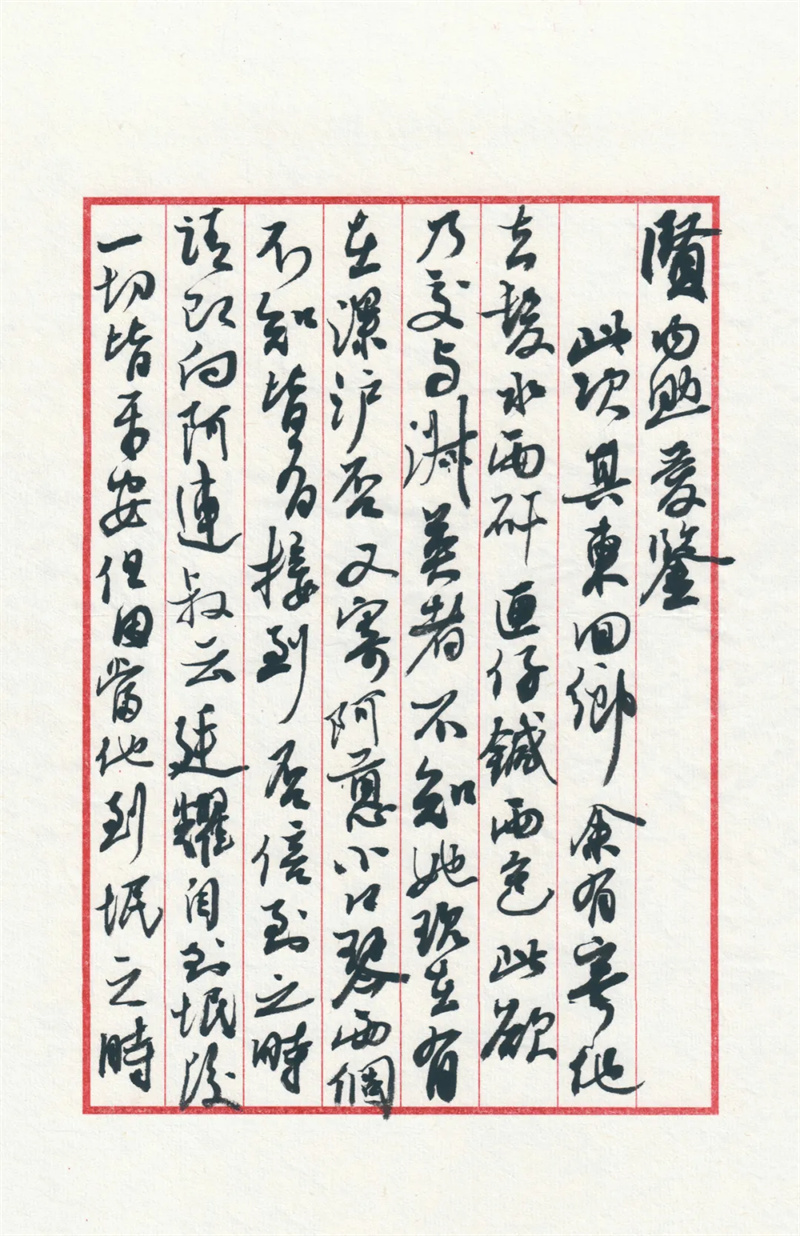 賢內助愛鑒
此次其東回鄉余有寄他
去髮水兩矸匣仔鍼兩包此欲
乃交与淋英者不知她現在有
在漯沪否又寄阿意小口琴兩個
不知皆有接到否信到之時
請即向阿連叔云廷耀自到垊後
一切皆平安但因當他到垊之時